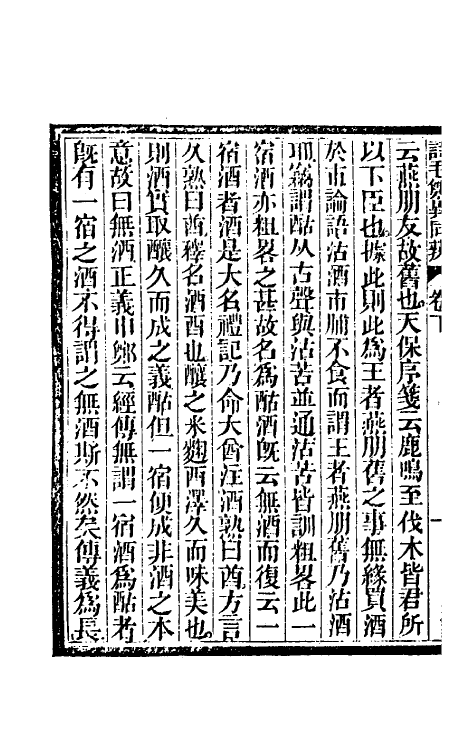 詩毛鄭異同辨 卷下 一
云燕朋友故舊也天保序箋云鹿鳴至伐木皆君所
以下臣也據此則此為王者燕朋舊之事無緣買酒
於市論語沽酒市脯不食而謂王者燕朋舊乃沽酒
耶竊謂酤从古聲與沽苦並通沽苦皆訓粗畧此一
宿酒亦粗畧之甚故名為酤酒既云無酒而復云一
宿酒者酒是大名禮記乃命大酋注酒熟曰酋方言
久熟曰酋釋名酒酉也釀之米麴酉澤久而味美也
則酒實取釀久而成之義酤但一宿便成非酒之本
意故曰無酒正義申鄭云經傳無謂一宿酒為酤者
既有一宿之酒不得謂之無酒斯不然矣傳義為長